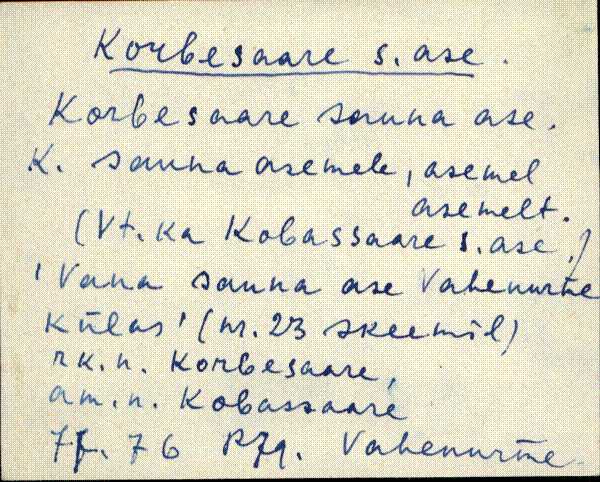 Korbesaare s. ase.
Korbesaare sauna ase.
K. sauna asemele, asemel
asemelt.
(Vt. ka Kobassaare s. ase.)
'Vana sauna ase Vahenurme
külas' (nr. 23 skeemil)
rk. n. Korbesaare,
am. n. Kobassaare
76 Vahenurme.